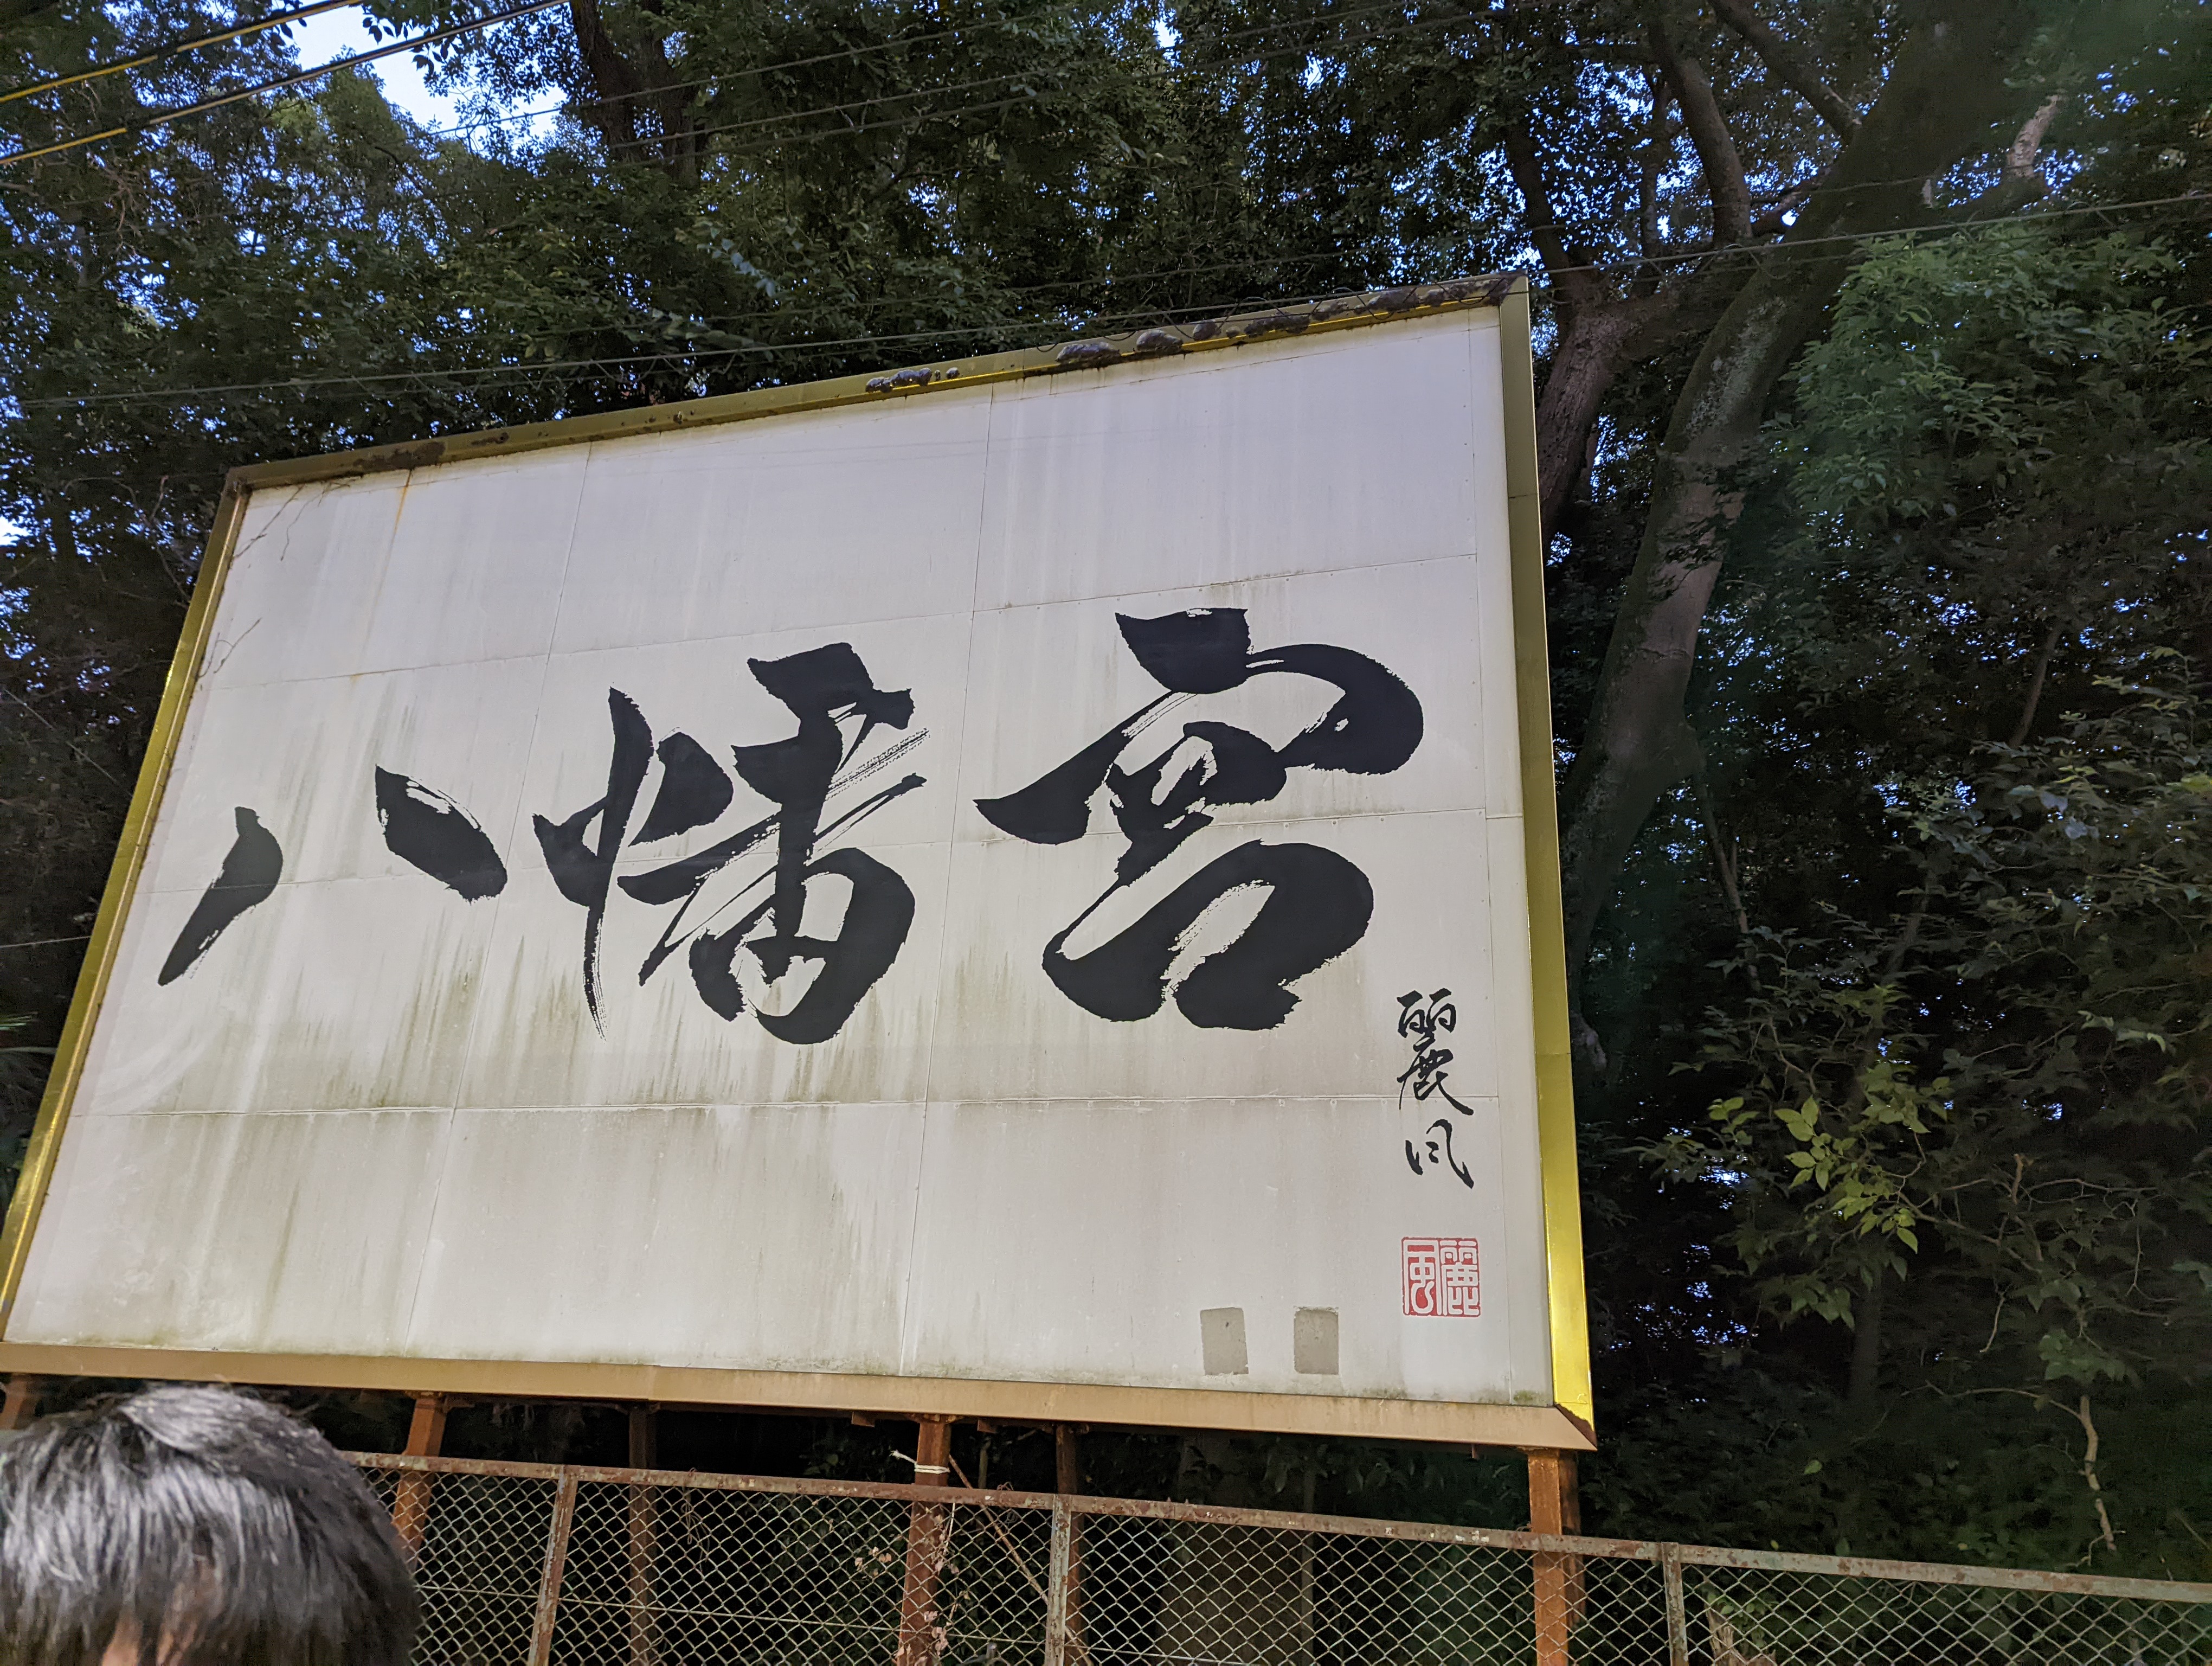 八幡宮
麗風
麗風